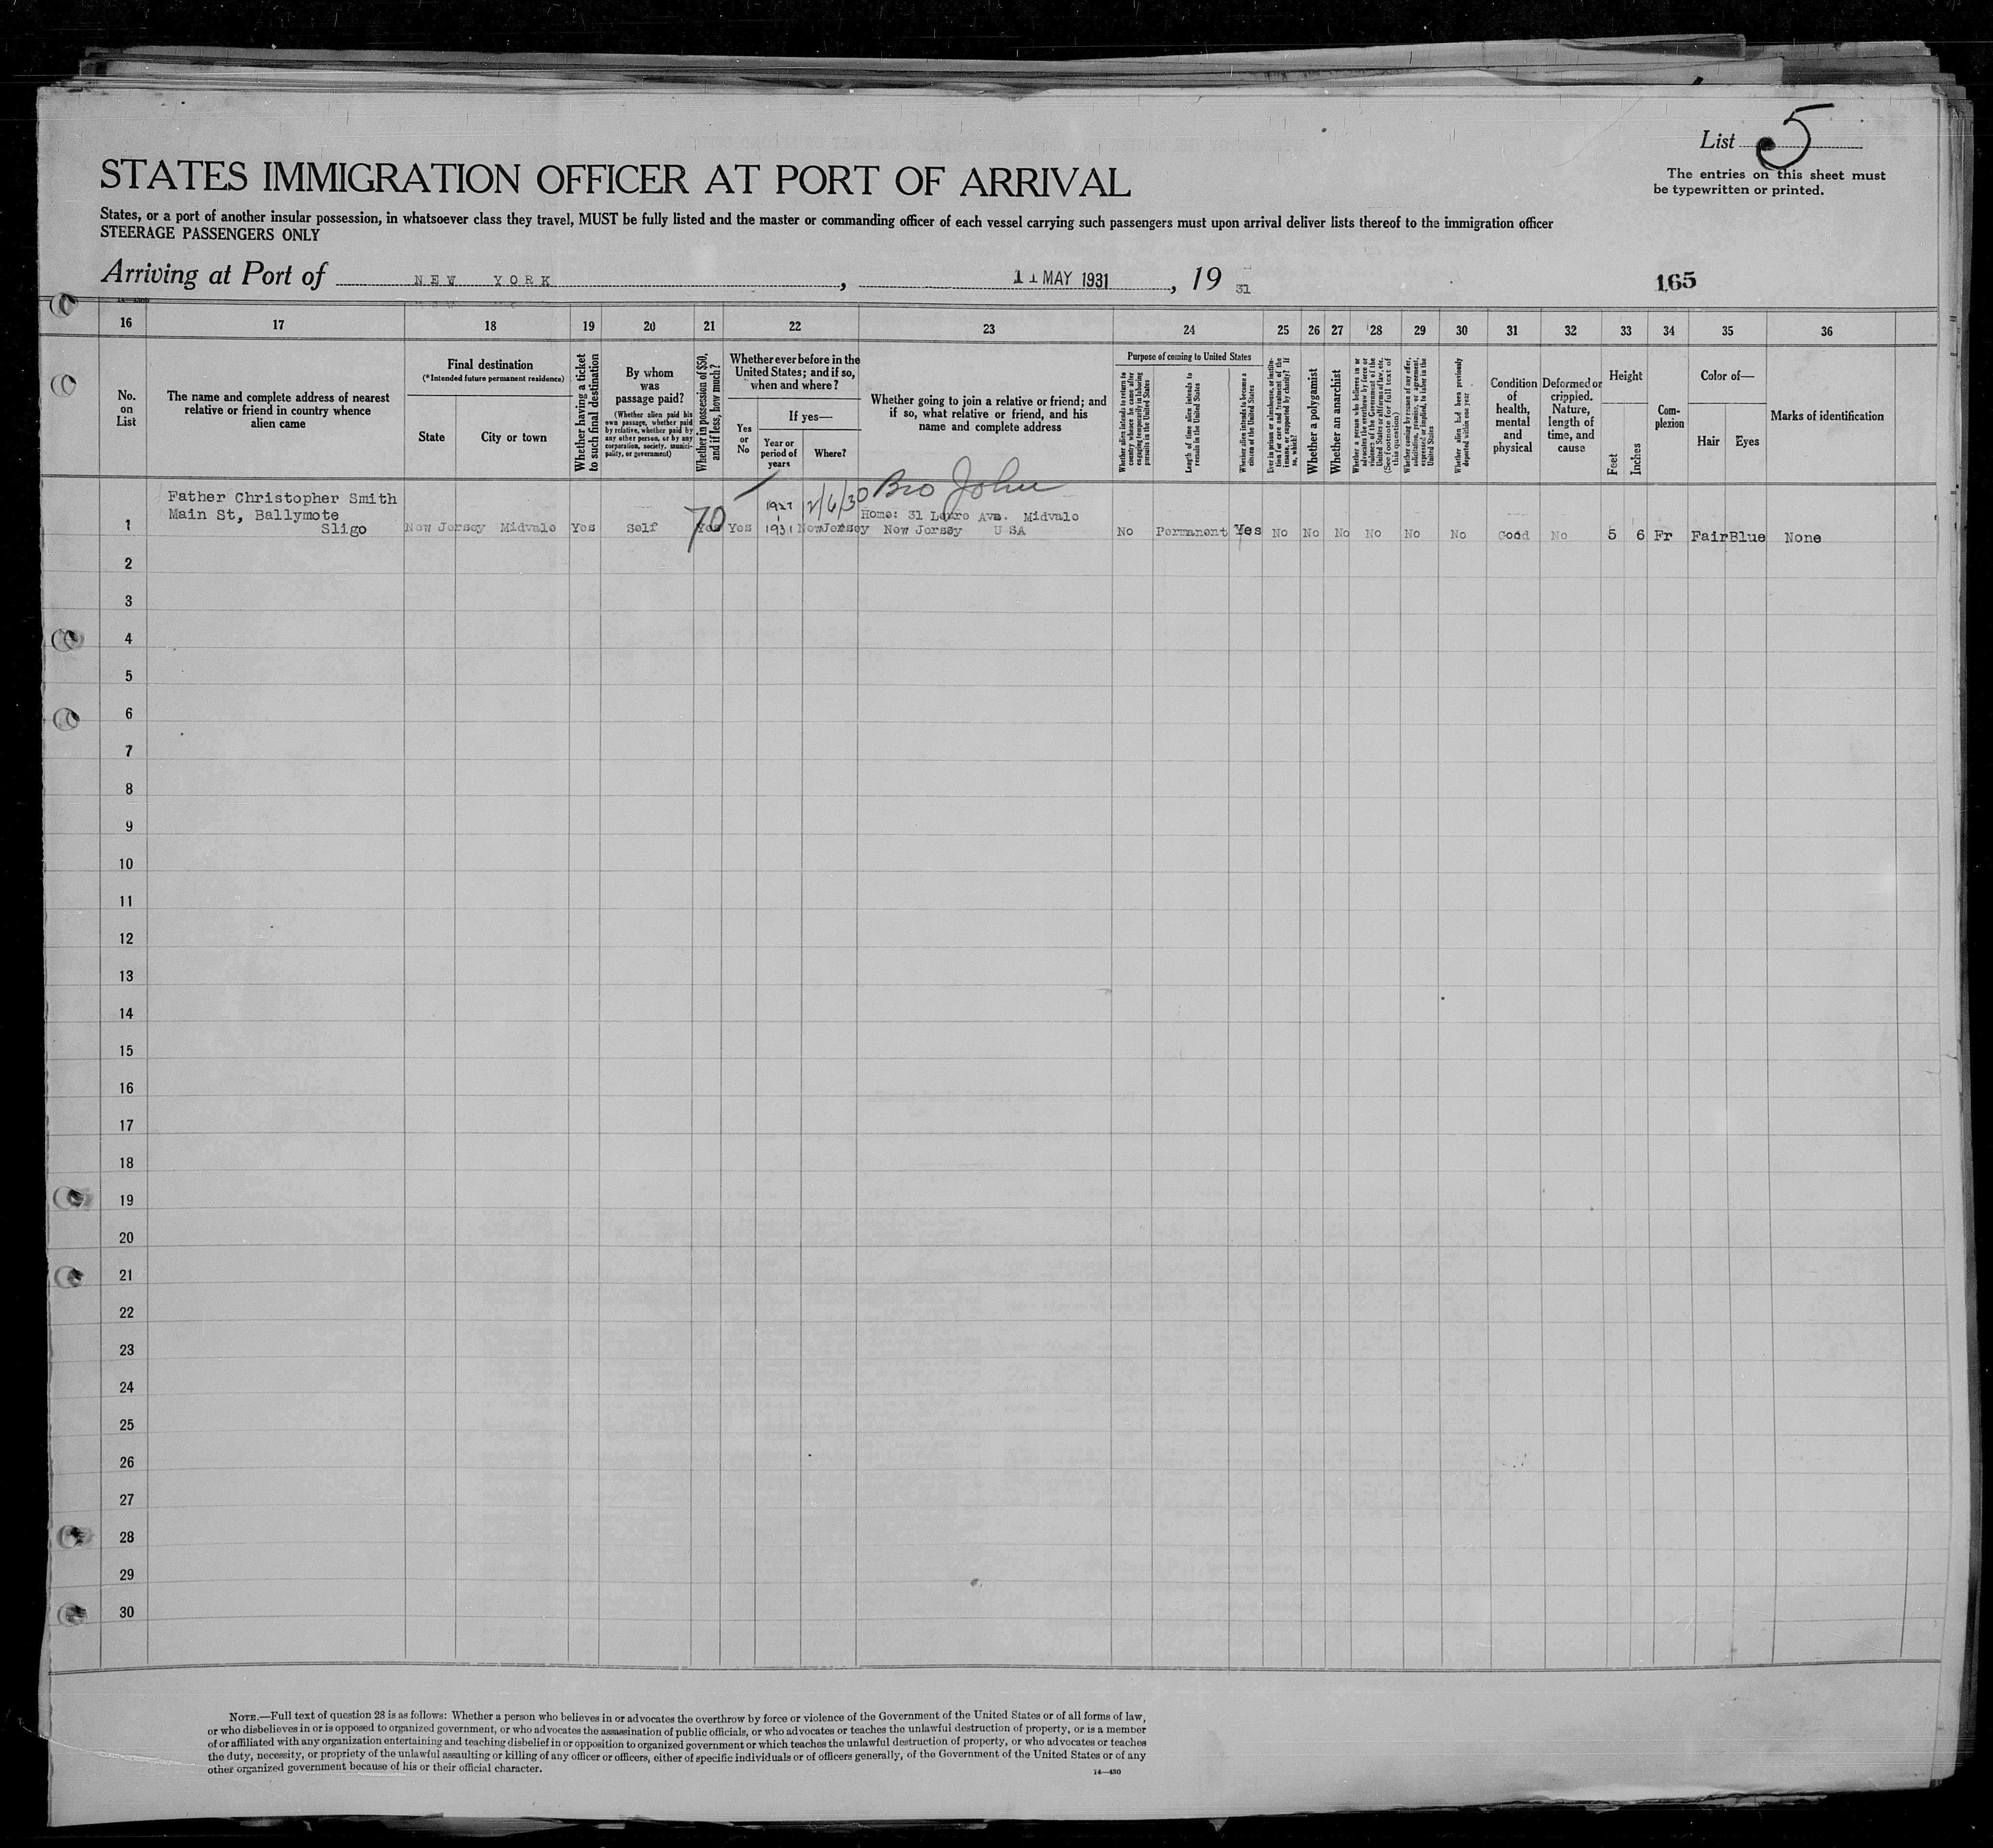 List 5
The entries on this sheet must
be typewritten or printed.
STATES IMMIGRATION OFFICER AT PORT OF ARRIVAL
States, or a port of another insular possession, in whatsoever class they travel, MUST be fully listed and the master or commanding officer of each vessel carrying such passengers must upon arrival deliver lists thereof to the immigration officer
STEERAGE PASSENGERS ONLY
Arriving at Port of NEW YORK, 11 MAY 1931, 19 31
165
16 17 18 19 20 21 22 23 24 25 26 27 28 29 30 31 32 33 34 35 36
No.
on
List
The name and complete address of nearest
relative or friend in country whence
alien came
Final destination
(*Intended future permanent residence)
State
City or town
Whether having a ticket
to such final destination
By whom
was
passage paid?
(Whether alien paid his
own passage, whether paid
by relative, whether paid by
any other person, or by any
corporation, society, munici-
pality, or government)
Whether in possession of $50,
and if less, how much?
Whether ever before in the
United States; and if so,
when and where?
Yes
or
No
If yes—
Year or
period of
years
Where?
Whether going to join a relative or friend; and
if so, what relative or friend, and his
name and complete address
Purpose of coming to United States
Whether alien intends to return to
country whence he came after
engaging temporarily in laboring
pursuits in the United States
Length of time alien intends to
remain in the United States
Whether alien intends to become a
citizen of the United States
Ever in prison or almshouse, or institu-
tion for care and treatment of the
insane, or supported by charity? If
so, which?
Whether a polygamist
Whether an anarchist
Whether a person who believes in or
advocates the overthrow by force or
violence of the Government of the
United States or all forms of law, etc.
(See footnote for full text of
this question)
Whether coming by reason of any offer,
solicitation, promise, or agreement,
expressed or implied, to labor in the
United States
Whether alien had been previously
deported within one year
Condition
of
health,
mental
and
physical
Deformed or
crippled.
Nature,
length of
time, and
cause
Height
Feet
Inches
Com-
plexion
Color of—
Hair
Eyes
Marks of identification
Bro John
Father Christopher Smith
Main St, Ballymote
Sligo
1 New Jersey Midvale Yes Self Yes 70 Yes 1927 1931 2/6/30 New Jersey
Home: 31 Ave. Midvale
New Jersey U SA
No Permanent Yes No No No No No No Good No 5 6 Fr Fair Blue None
2
3
4
5
6
7
8
9
10
11
12
13
14
15
16
17
18
19
20
21
22
23
24
25
26
27
28
29
30
NOTE.—Full text of question 28 is as follows: Whether a person who believes in or advocates the overthrow by force or violence of the Government of the United States or of all forms of law,
or who disbelieves in or is opposed to organized government, or who advocates the assassination of public officials, or who advocates or teaches the unlawful destruction of property, or is a member
of or affiliated with any organization entertaining and teaching disbelief in or opposition to organized government or which teaches the unlawful destruction of property, or who advocates or teaches
the duty, necessity, or propriety of the unlawful assaulting or killing of any officer or officers, either of specific individuals or of officers generally, of the Government of the United States or of any
other organized government because of his or their official character.
14—430